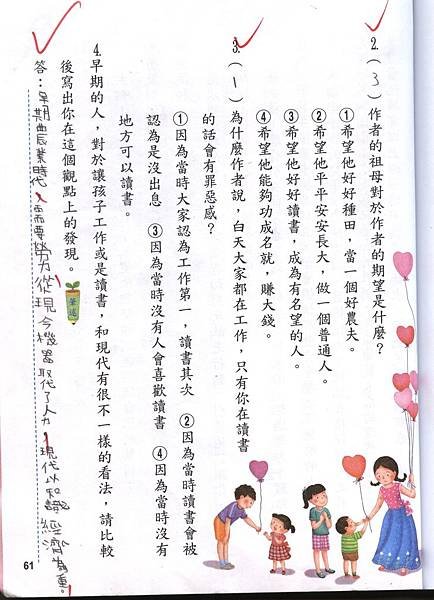 2.(3)作者的祖母對於作者的期望是什麼?
①希望他好好種田,當一個好農夫。
②希望他平平安安長大,做一個普通人。
③希望他好好讀書,成為有名望的人。
④希望他能夠功成名就,賺大錢。
3.(1)為什麼作者說,白天大家都在工作,只有你在讀書
的話會有罪惡感?
①因為當時大家認為工作第一,讀書其次 ②因為當時讀書會被
認為是沒出息 ③因為當時沒有人會喜歡讀書 ④因為當時沒有
地方可以讀書。
4.早期的人,對於讓孩子工作或是讀書,和現代有很不一樣的看法,請比較
後寫出你在這個觀點上的發現。
筆述
答:早期農業時代,需要勞力從現今機器取代了人力,現代以知識經濟為重。
61